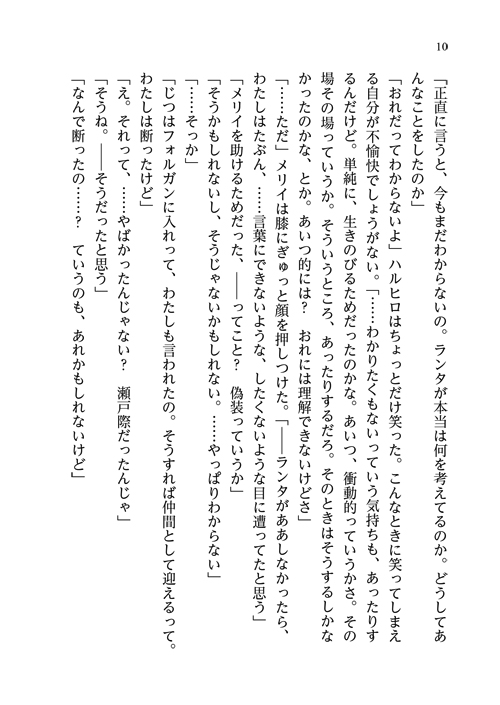 10
「正直に言うと、今もまだわからないの。ランタが本当は何を考えてるのか。どうしてあ
んなことをしたのか」
「おれだってわからないよ」ハルヒロはちょっとだけ笑った。こんなときに笑ってしまえ
る自分が不愉快でしょうがない。「……わかりたくもないっていう気持ちも、あったりす
るんだけど。単純に、生きのびるためだったのかな。あいつ、衝動的っていうかさ。その
場その場っていうか。そういうところ、あったりするだろ。そのときはそうするしかな
かったのかな、とか。あいつ的には？　おれには理解できないけどさ」
「……ただ」メリイは膝にぎゅっと顔を押しつけた。「――ランタがああしなかったら、
わたしはたぶん、……言葉にできないような、したくないような目に遭ってたと思う」
「メリイを助けるためだった、――ってこと？　偽装っていうか」
「そうかもしれないし、そうじゃないかもしれない。……やっぱりわからない」
「……そっか」
「じつはフォルガンに入れって、わたしも言われたの。そうすれば仲間として迎えるって。
わたしは断ったけど」
「え。それって、……やばかったんじゃない？　瀬戸際だったんじゃ」
「そうね。――そうだったと思う」
「なんで断ったの……？　ていうのも、あれかもしれないけど」